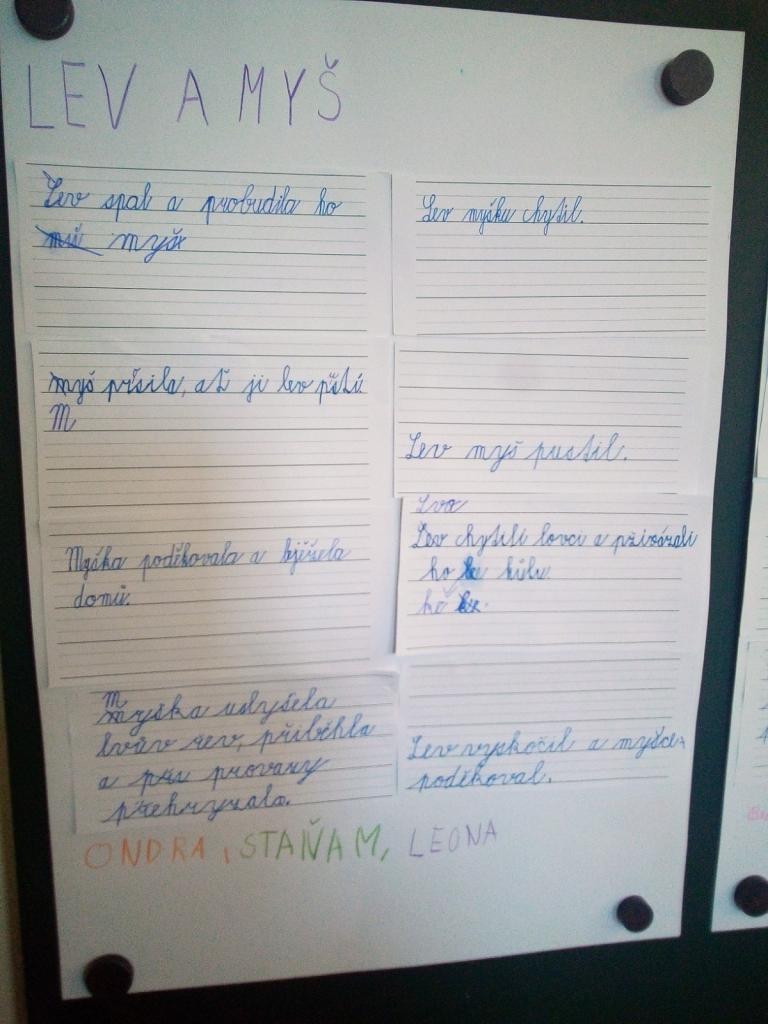 LEV A MYŠ
Lev spal a probudila ho
myš
Lev myšku chytil.
myš prosila, ať ji lev pustí.
M
Lev myš pustil.
Myška poděkovala a běžela
domů.
Lva
Lev chytili lovci a přivázali
ho ke kůlu.
ho ke.
M
myška uslyšela
lvův řev, přiběhla
a provazy
přehryzala.
Lev vyskočil a myšce
poděkoval.
ONDRA, STAŇA M, LEONA